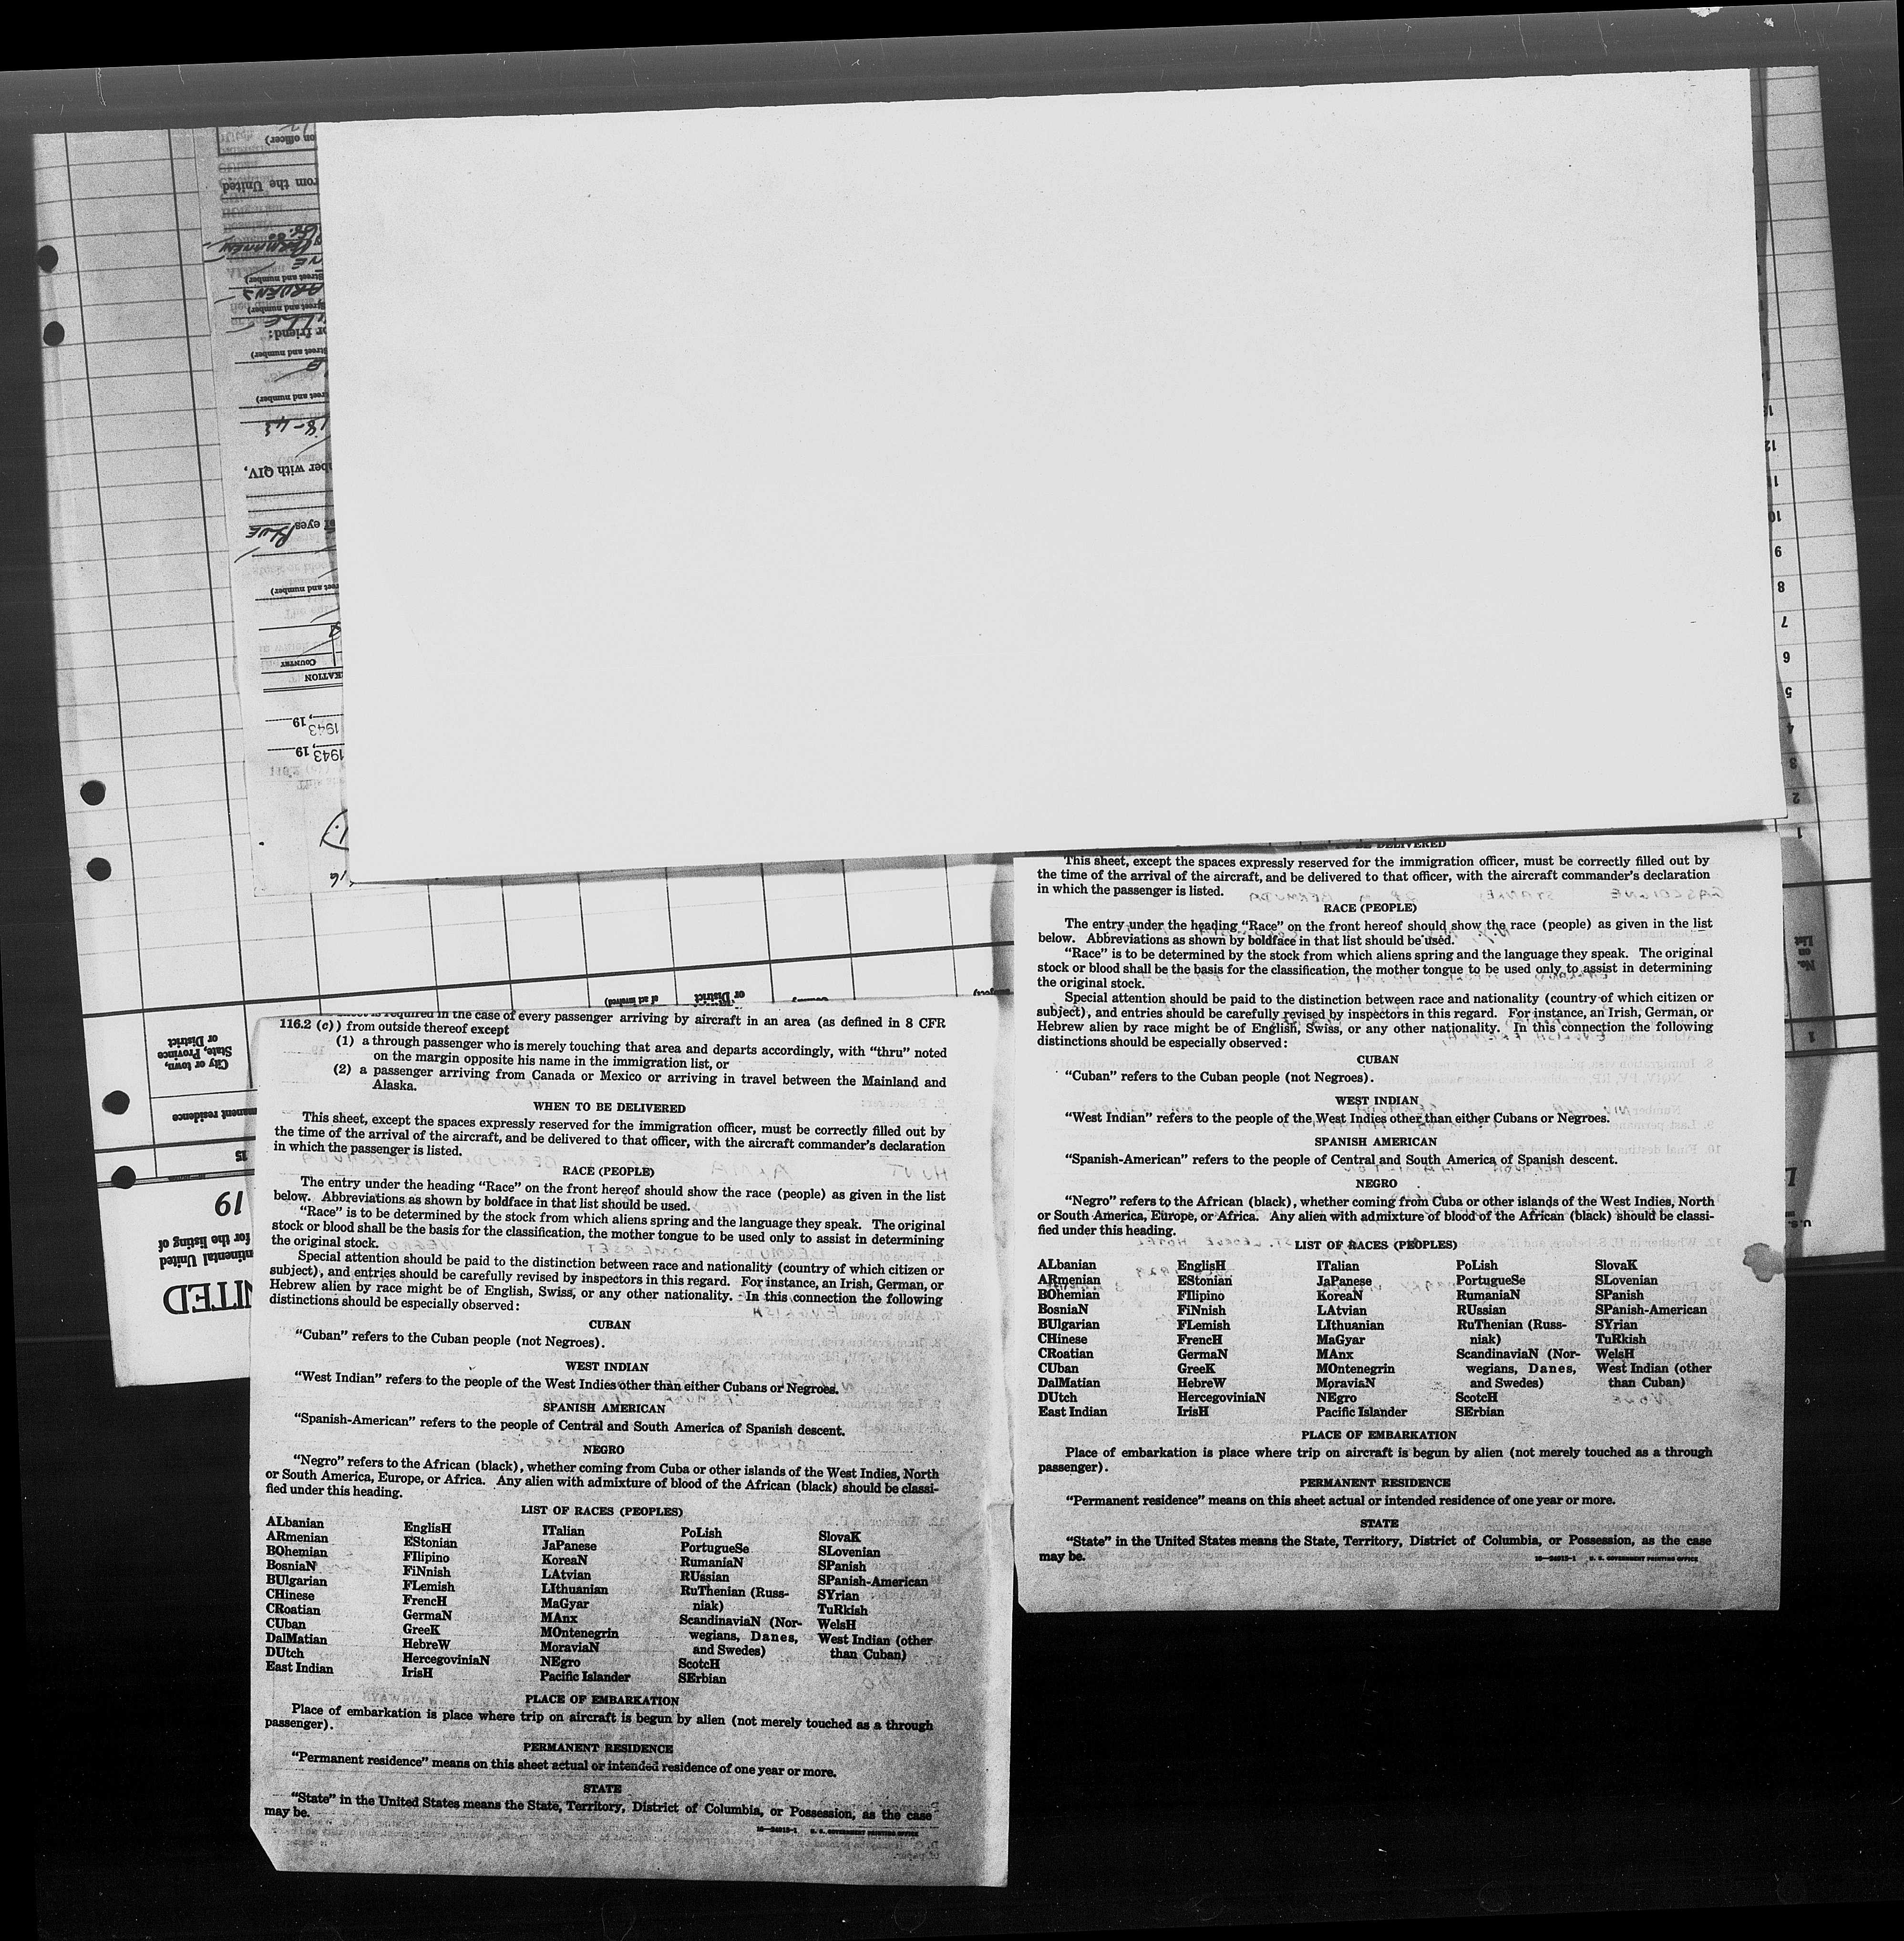 116.2 (c)) from outside thereof except
(1) a through passenger who is merely touching that area and departs accordingly, with “thru” noted
on the margin opposite his name in the immigration list, or
(2) a passenger arriving from Canada or Mexico or arriving in travel between the Mainland and
Alaska.
WHEN TO BE DELIVERED
This sheet, except the spaces expressly reserved for the immigration officer, must be correctly filled out by
the time of the arrival of the aircraft, and be delivered to that officer, with the aircraft commander’s declaration
in which the passenger is listed.
RACE (PEOPLE)
The entry under the heading “Race” on the front hereof should show the race (people) as given in the list
below. Abbreviations as shown by boldface in that list should be used.
“Race” is to be determined by the stock from which aliens spring and the language they speak. The original
stock or blood shall be the basis for the classification, the mother tongue to be used only to assist in determining
the original stock.
Special attention should be paid to the distinction between race and nationality (country of which citizen or
subject), and entries should be carefully revised by inspectors in this regard. For instance, an Irish, German, or
Hebrew alien by race might be of English, Swiss, or any other nationality. In this connection the following
distinctions should be especially observed:
CUBAN
“Cuban” refers to the Cuban people (not Negroes).
WEST INDIAN
“West Indian” refers to the people of the West Indies other than either Cubans or Negroes.
SPANISH AMERICAN
“Spanish-American” refers to the people of Central and South America of Spanish descent.
NEGRO
“Negro” refers to the African (black), whether coming from Cuba or other islands of the West Indies, North
or South America, Europe, or Africa. Any alien with admixture of blood of the African (black) should be classi-
fied under this heading.
LIST OF RACES (PEOPLES)
ALbanian
ARmenian
BOhemian
BosniaN
BUlgarian
CHinese
CRoatian
CUban
DalMatian
DUtch
East Indian
EnglisH
EStonian
FIlipino
FiNnish
FLemish
FrencH
GermaN
GreeK
HebreW
HercegoviniaN
IrisH
ITalian
JaPanese
KoreaN
LAtvian
LIthuanian
MaGyar
MAnx
MOntenegrin
MoraviaN
NEgro
Pacific Islander
PoLish
PortugueSe
RumaniaN
RUssian
RuThenian (Russ-
niak)
ScandinaviaN (Nor-
wegians, Danes,
and Swedes)
ScotcH
SErbian
SlovaK
SLovenian
SPanish
SPanish-American
SYrian
TuRkish
WelsH
West Indian (other
than Cuban)
PLACE OF EMBARKATION
Place of embarkation is place where trip on aircraft is begun by alien (not merely touched as a through
passenger).
PERMANENT RESIDENCE
“Permanent residence” means on this sheet actual or intended residence of one year or more.
STATE
“State” in the United States means the State, Territory, District of Columbia, or Possession, as the case
may be.
U. S. GOVERNMENT PRINTING OFFICE
This sheet, except the spaces expressly reserved for the immigration officer, must be correctly filled out by
the time of the arrival of the aircraft, and be delivered to that officer, with the aircraft commander’s declaration
in which the passenger is listed.
RACE (PEOPLE)
The entry under the heading “Race” on the front hereof should show the race (people) as given in the list
below. Abbreviations as shown by boldface in that list should be used.
“Race” is to be determined by the stock from which aliens spring and the language they speak. The original
stock or blood shall be the basis for the classification, the mother tongue to be used only to assist in determining
the original stock.
Special attention should be paid to the distinction between race and nationality (country of which citizen or
subject), and entries should be carefully revised by inspectors in this regard. For instance, an Irish, German, or
Hebrew alien by race might be of English, Swiss, or any other nationality. In this connection the following
distinctions should be especially observed:
CUBAN
“Cuban” refers to the Cuban people (not Negroes).
WEST INDIAN
“West Indian” refers to the people of the West Indies other than either Cubans or Negroes.
SPANISH AMERICAN
“Spanish-American” refers to the people of Central and South America of Spanish descent.
NEGRO
“Negro” refers to the African (black), whether coming from Cuba or other islands of the West Indies, North
or South America, Europe, or Africa. Any alien with admixture of blood of the African (black) should be classi-
fied under this heading.
LIST OF RACES (PEOPLES)
ALbanian
ARmenian
BOhemian
BosniaN
BUlgarian
CHinese
CRoatian
CUban
DalMatian
DUtch
East Indian
EnglisH
EStonian
FIlipino
FiNnish
FLemish
FrencH
GermaN
GreeK
HebreW
HercegoviniaN
IrisH
ITalian
JaPanese
KoreaN
LAtvian
LIthuanian
MaGyar
MAnx
MOntenegrin
MoraviaN
NEgro
Pacific Islander
PoLish
PortugueSe
RumaniaN
RUssian
RuThenian (Russ-
niak)
ScandinaviaN (Nor-
wegians, Danes,
and Swedes)
ScotcH
SErbian
SlovaK
SLovenian
SPanish
SPanish-American
SYrian
TuRkish
WelsH
West Indian (other
than Cuban)
PLACE OF EMBARKATION
Place of embarkation is place where trip on aircraft is begun by alien (not merely touched as a through
passenger).
PERMANENT RESIDENCE
“Permanent residence” means on this sheet actual or intended residence of one year or more.
STATE
“State” in the United States means the State, Territory, District of Columbia, or Possession, as the case
may be.
U. S. GOVERNMENT PRINTING OFFICE